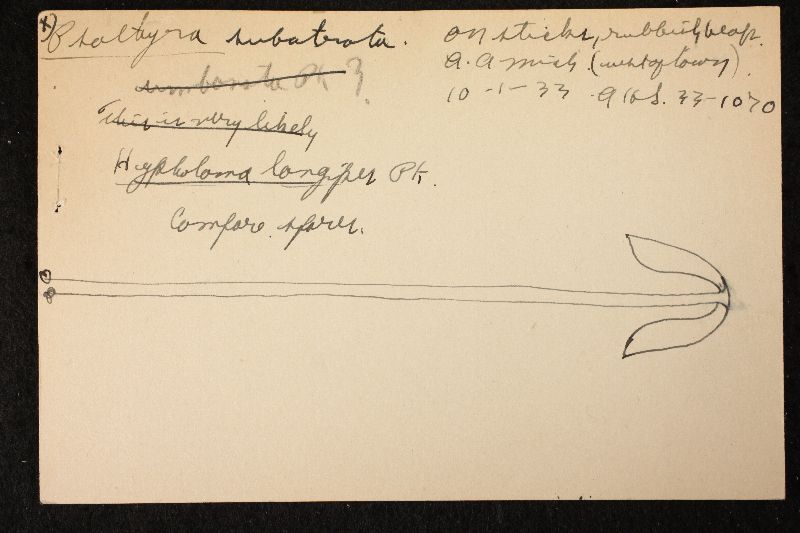 x)
Psathyra subatrata.
umbonata Pk ?
This is very likely
Hypholoma longipes Pk.
Compare spores.
on sticks, rubbish heap.
A. A. Mich. (west of town).
10-1-33 AHS. 33-1070